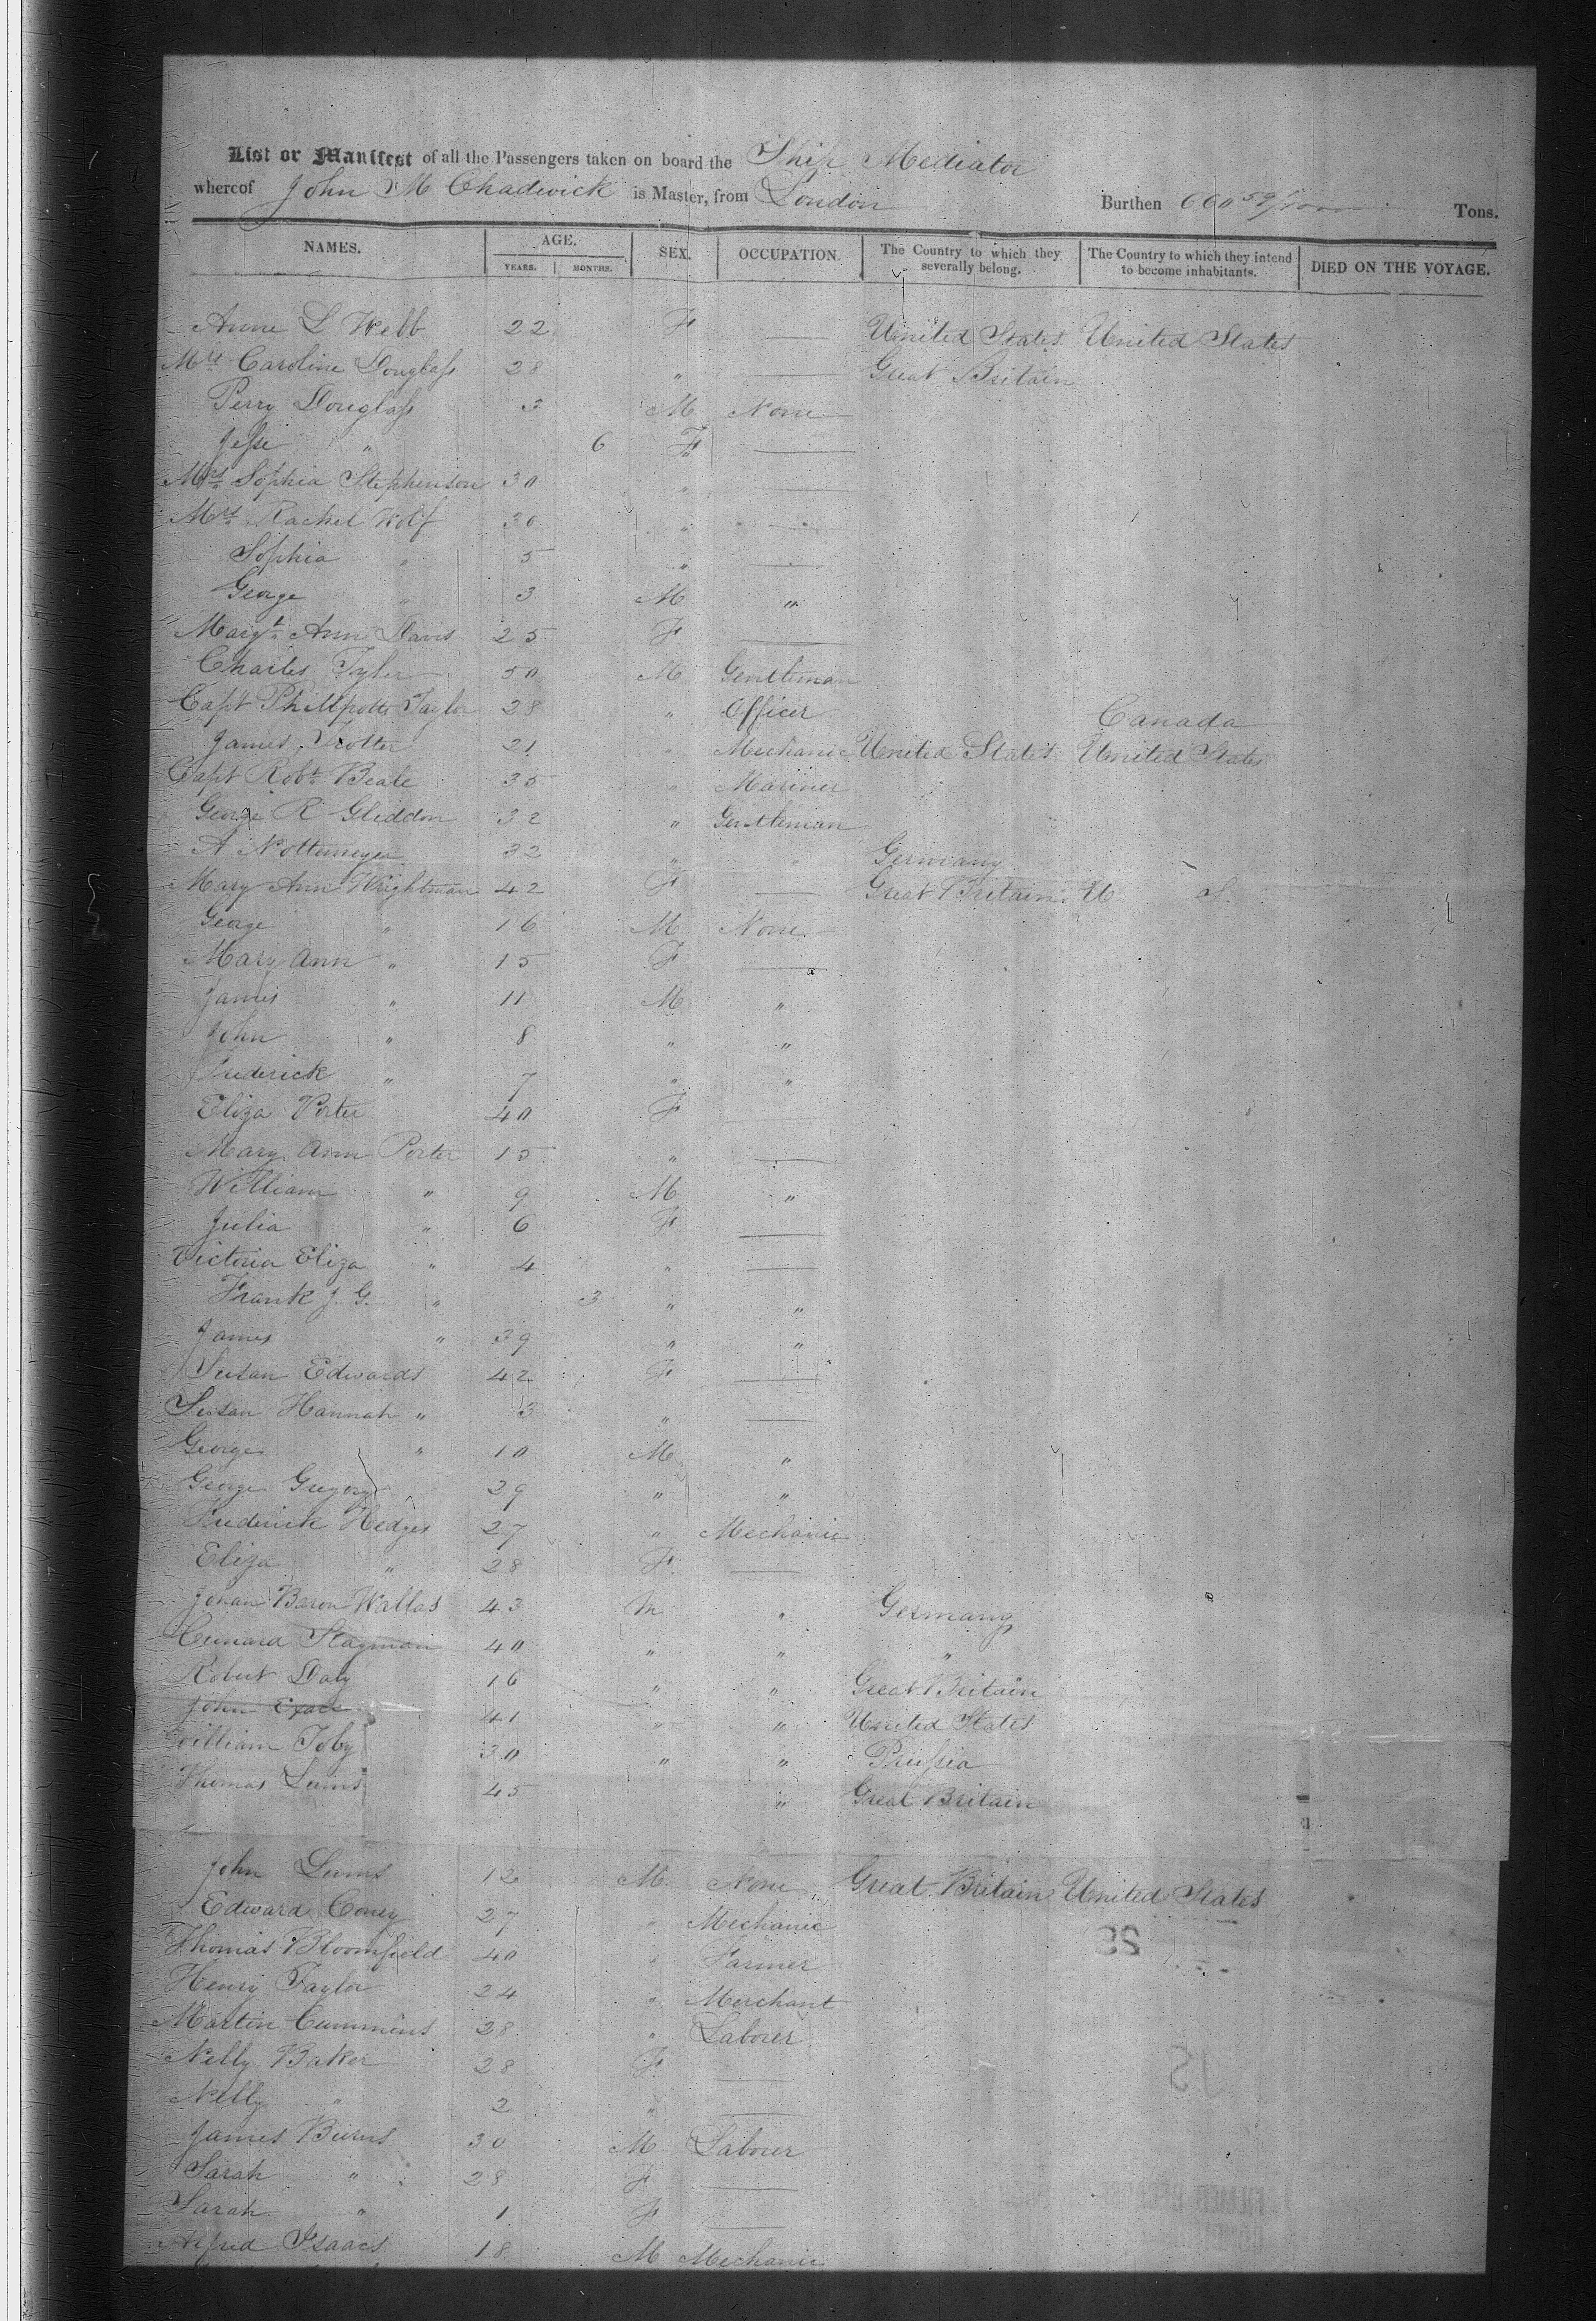 List or Manifest of all the Passengers taken on board the Ship Mediator
whereof John M Chadwick is Master, from London Burthen Tons.
NAMES. AGE. SEX. OCCUPATION. The Country to which they severally belong. The Country to which they intend to become inhabitants. DIED ON THE VOYAGE.
YEARS. MONTHS.
Anne L Webb 22 F — United States United States
Mrs Caroline Douglass 28 " — Great Britain
Perry Douglass 3 M None
Jesse " 6 F —
Mrs Sophia Stephenson 30 " —
Mrs Rachel Wolf 30 " " — "
Sophia " 5 " —
George " 3 M "
Margt Ann Davis 25 F —
Charles Tyler 50 M Gentleman
Capt Phillpotts Taylor 28 " Officer Canada
James Trotter 21 " Mechanic United States United States
Capt Robt Beale 35 " Mariner
George R Gliddon 32 " Gentleman
A Nottemeyer 32 " " Germany
Mary Ann Wrightman 42 F — Great Britain U S.
George " 16 M None
Mary Ann " 15 F —
James " 11 M "
John " 8 " "
Frederick " 7 " "
Eliza Porter 40 F —
Mary Ann Porter 15 " —
William " 9 M "
Julia " 6 F —
Victoria Eliza " 4 " —
Frank J. G. " 3 " "
James " 39 " "
Susan Edwards 42 F —
Susan Hannah " 3 " —
George " 10 M "
George Gregory 29 " "
Frederick Hedges 27 " Mechanic
Eliza " 28 F —
Johan Baron Wallas 43 M " Germany
Stagman 40 " " "
Robert Daly 16 " " Great Britain
John 41 " " United States
William Toby 30 " " Prussia
Thomas Lums 45 " Great Britain
John Lums 12 M None Great Britain United States
Edward Coney 27 " Mechanic
Thomas Bloomfield 40 " Farmer
Henry Taylor 24 " Merchant
Martin Cummins 28 " Labourer
Nelly Baker 28 F —
Nelly " 2 " —
James Burns 30 M Labourer
Sarah " 28 F —
Sarah " 1 F —
Alfred Isaacs 18 M Mechanic